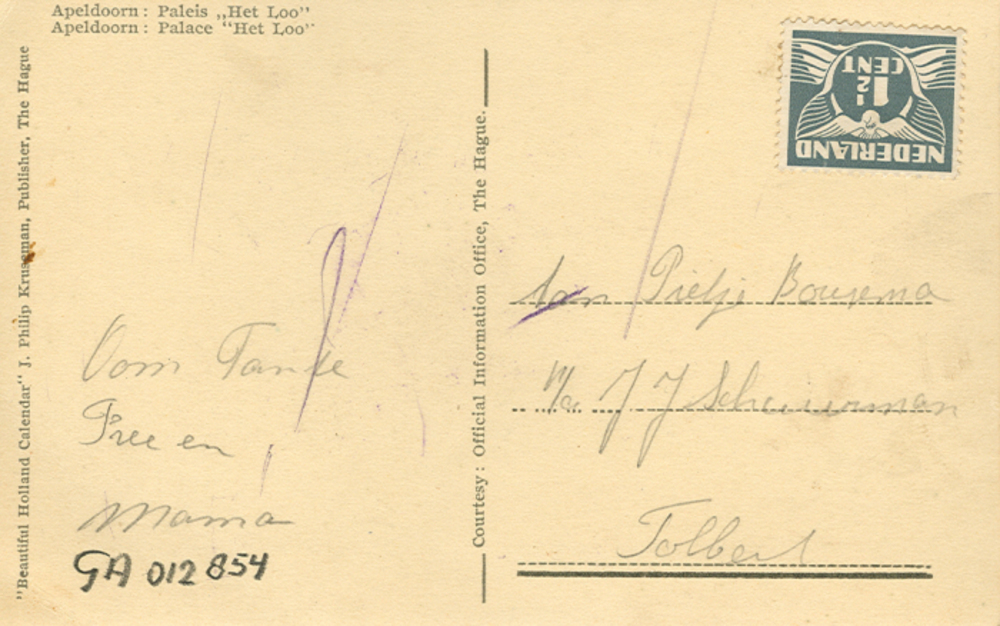 Apeldoorn: Paleis „Het Loo”
Apeldoorn: Palace “Het Loo”
"Beautiful Holland Calendar" J. Philip Kruseman, Publisher, The Hague
Courtesy: Official Information Office, The Hague.
NEDERLAND
1½
CENT
Oom Tante
Free en
Mama
GA 012854
Aan Pietje Bouwema
p/a J J Scheuerman
Tolbert